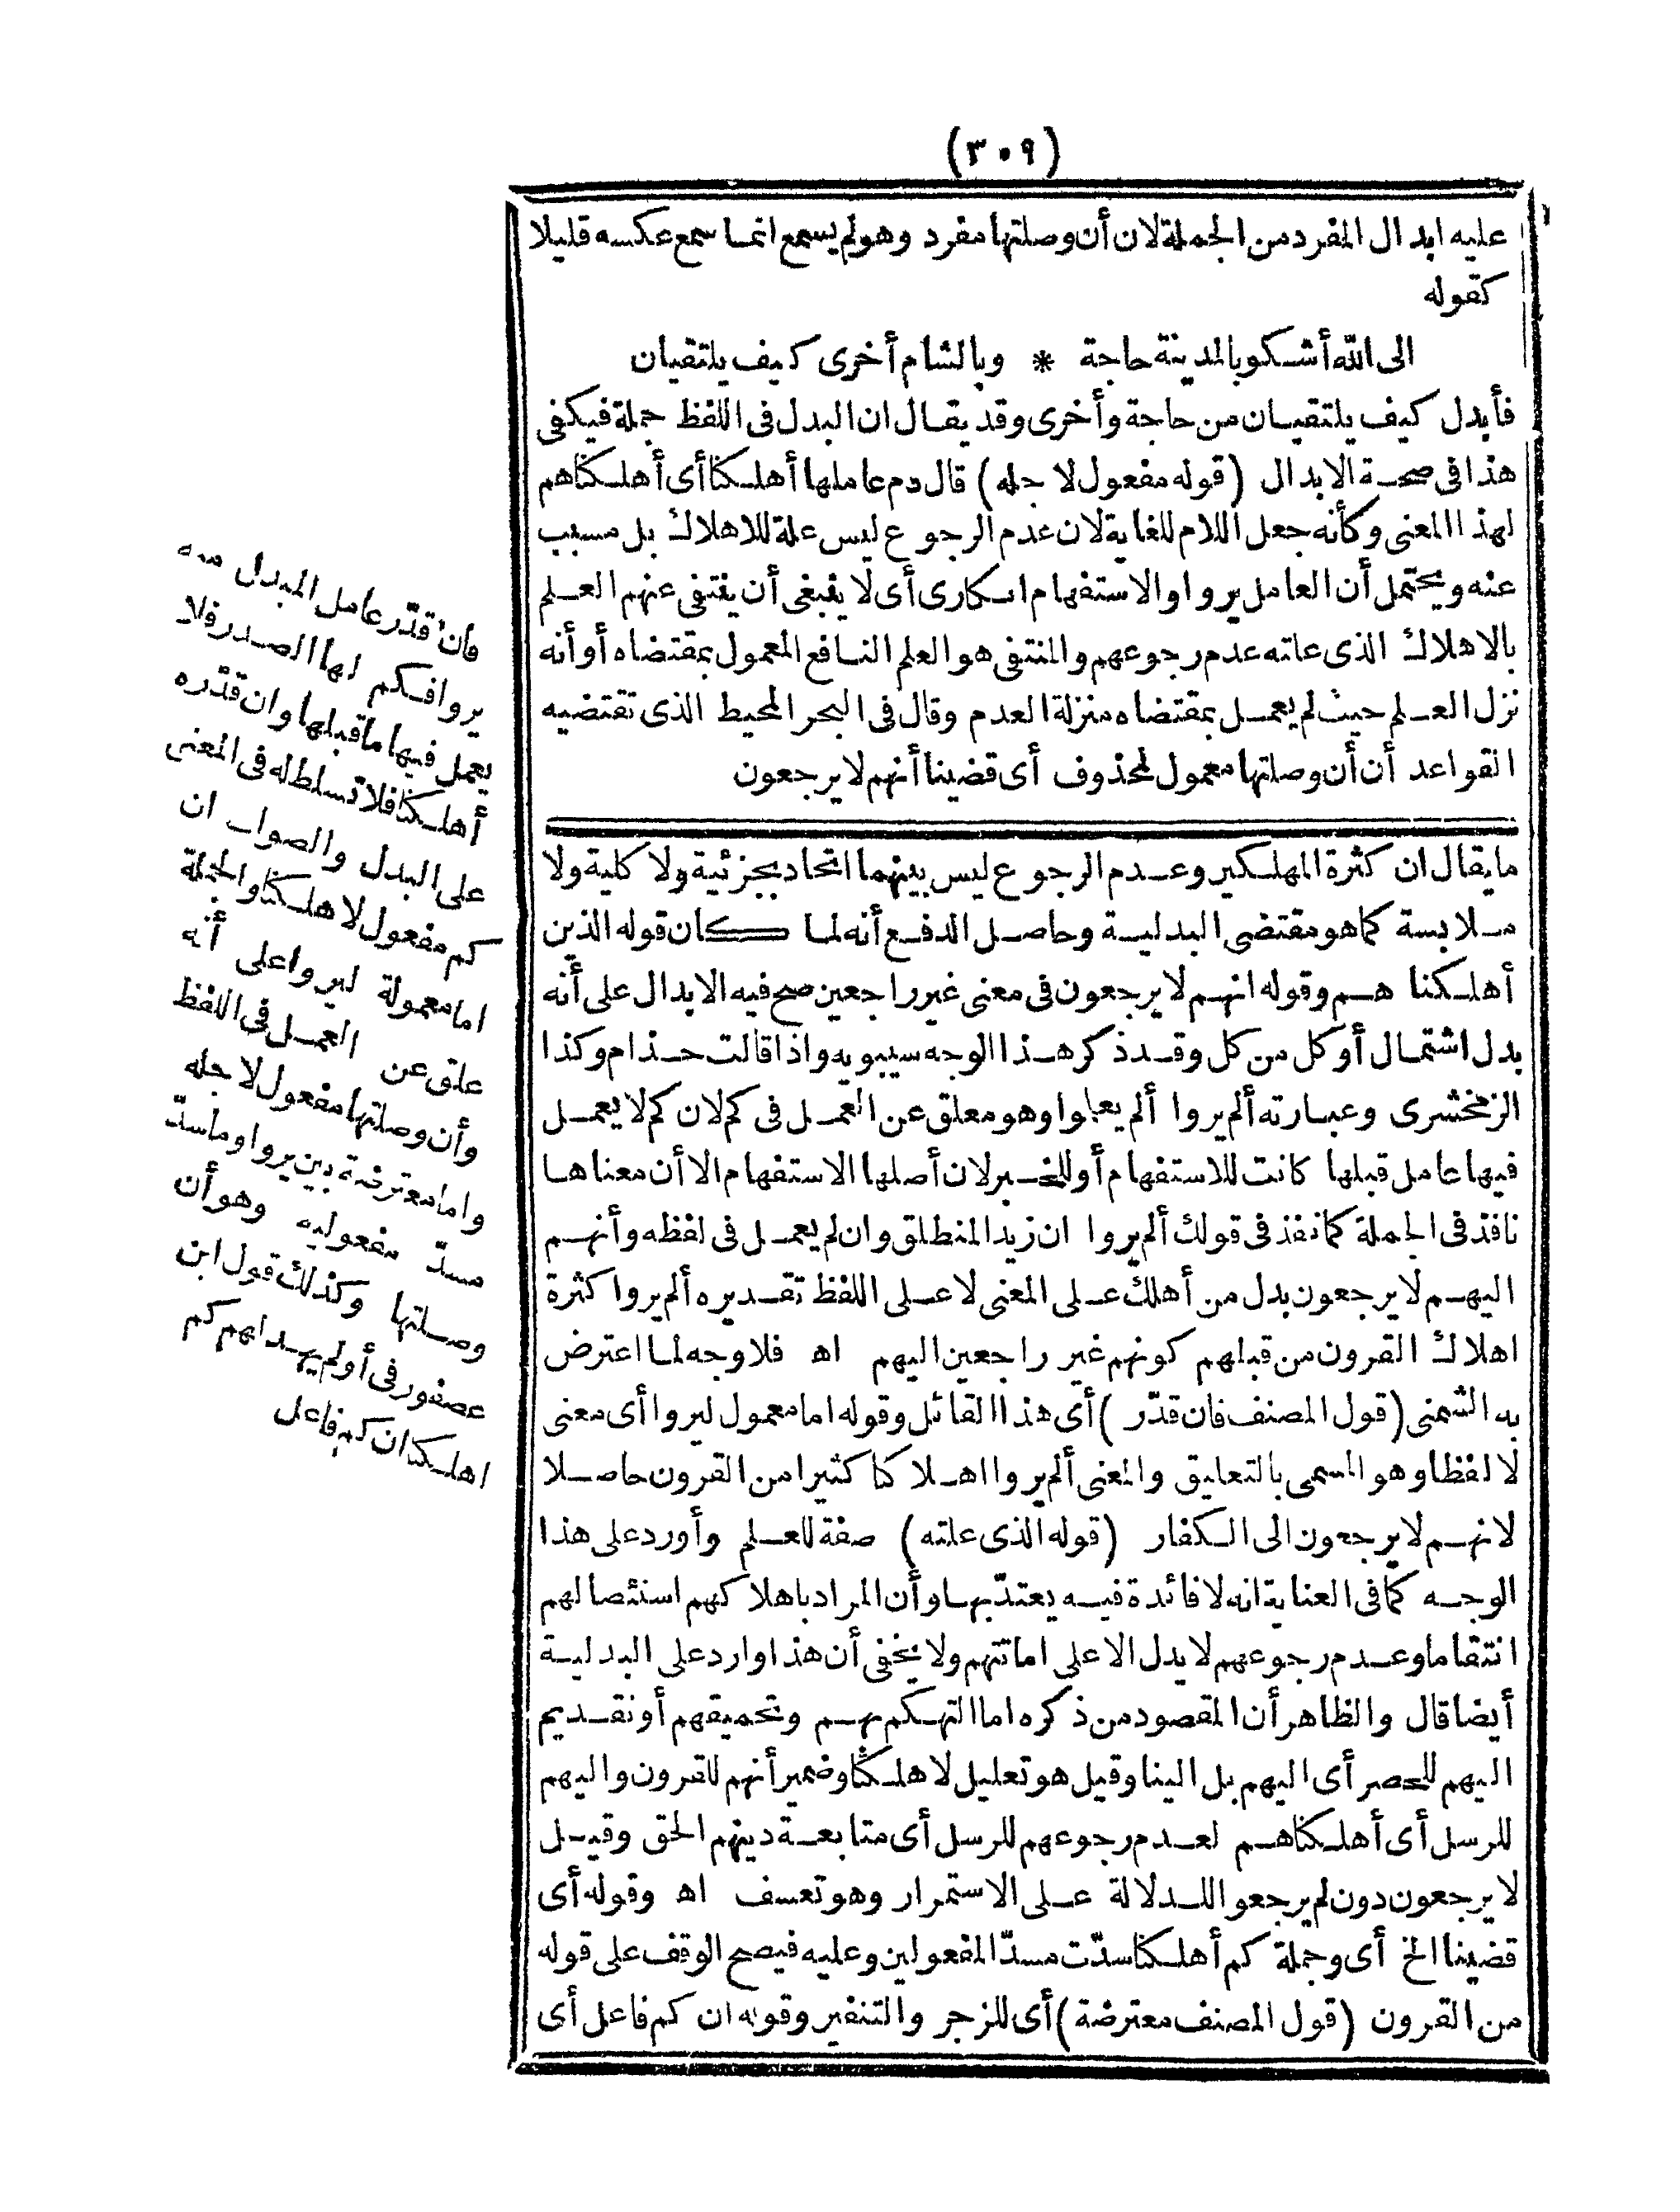 (٣٠٩)
عليه ابدال المفرد من الجملة لان أن وصلتها مفرد وهو لم يسمع انما سمع عكسه قليلا
كقوله
الى الله أشكو بالمدينة حاجة * وبالشام أخرى كيف يلتقيان
فأبدل كيف يلتقيان من حاجة وأخرى وقد يقال ان البدل فى اللفظ جملة فيكفى
هذا فى صحة الابدال (قوله مفعول لاجله) قال دم عاملها أهلكنا أى أهلكناهم
لهذا المعنى وكأنه جعل اللام للغاية لان عدم الرجوع ليس علة للاهلاك بل مسبب
عنه ويحتمل أن العامل يروا والاستفهام انكارى أى لا ينبغى أن ينتفى عنهم العلم
بالاهلاك الذى علته عدم رجوعهم والمنتفى هو العلم النافع المعمول بمقتضاه أو أنه
نزل العلم حيث لم يعمل بمقتضاه منزلة العدم وقال فى البحر المحيط الذى تقتضيه
القواعد أن أن وصلتها معمول لمحذوف أى قضينا أنهم لا يرجعون
ما يقال ان كثرة المهلكين وعدم الرجوع ليس بينهما اتحاد بجزئية ولا كلية ولا
ملابسة كما هو مقتضى البدلية وحاصل الدفع أنه لما كان قوله الذين
أهلكنا هم وقوله انهم لا يرجعون فى معنى غير راجعين صح فيه الابدال على أنه
بدل اشتمال أو كل من كل وقد ذكر هذا الوجه سيبويه واذا قالت حذام وكذا
الزمخشرى وعبارته ألم يروا ألم يعلموا وهو معلق عن العمل فى كم لان كم لا يعمل
فيها عامل قبلها كانت للاستفهام أو للخبر لان أصلها الاستفهام الا أن معناها
نافذ فى الجملة كما نفذ فى قولك ألم يروا ان زيد المنطلق وان لم يعمل فى لفظه وأنهم
اليهم لا يرجعون بدل من أهلك على المعنى لا على اللفظ تقديره ألم يروا كثرة
اهلاك القرون من قبلهم كونهم غير راجعين اليهم اه فلا وجه لما اعترض
به الشمنى (قول المصنف فان قدّر) أى هذا القائل وقوله اما معمول ليروا أى معنى
لا لفظا وهو المسمى بالتعليق والمعنى ألم يروا اهلاكنا كثيرا من القرون حاصلا
لانهم لا يرجعون الى الكفار (قوله الذى علته) صفة للعلم وأورد على هذا
الوجه كما فى العناية انه لا فائدة فيه يعتدّ بها وأن المراد باهلاكهم استئصالهم
انتقاما وعدم رجوعهم لا يدل الا على اماتتهم ولا يخفى أن هذا وارد على البدلية
أيضا قال والظاهر أن المقصود من ذكره اما التهكم بهم وتحميقهم أو تقديم
اليهم للحصر أى اليهم بل الينا وقيل هو تعليل لاهلكنا وضمير أنهم للقرون واليهم
للرسل أى أهلكناهم لعدم رجوعهم للرسل أى متابعة دينهم الحق وقيل
لا يرجعون دون لم يرجعوا للدلالة على الاستمرار وهو تعسف اه وقوله أى
قضينا الخ أى وجملة كم أهلكنا سدّت مسدّ المفعولين وعليه فيصح الوقف على قوله
من القرون (قول المصنف معترضة) أى للزجر والتنفير وقوله ان كم فاعل أى
فان قدّر عامل المبدل منه
يروا فكم لها الصدر فلا
يعمل فيها ما قبلها وان قدّره
أهلكنا فلا تسلط له فى المعنى
على البدل والصواب ان
كم مفعول لاهلكنا والجملة
اما معمولة ليروا على أنه
علق عن العمل فى اللفظ
وأن وصلتها مفعول لاجله
واما معترضة بين يروا وما سدّ
مسدّ مفعوليه وهو أن
وصلتها وكذلك قول ابن
عصفور فى أولم يهد لهم كم
اهلكنا ان كم فاعل